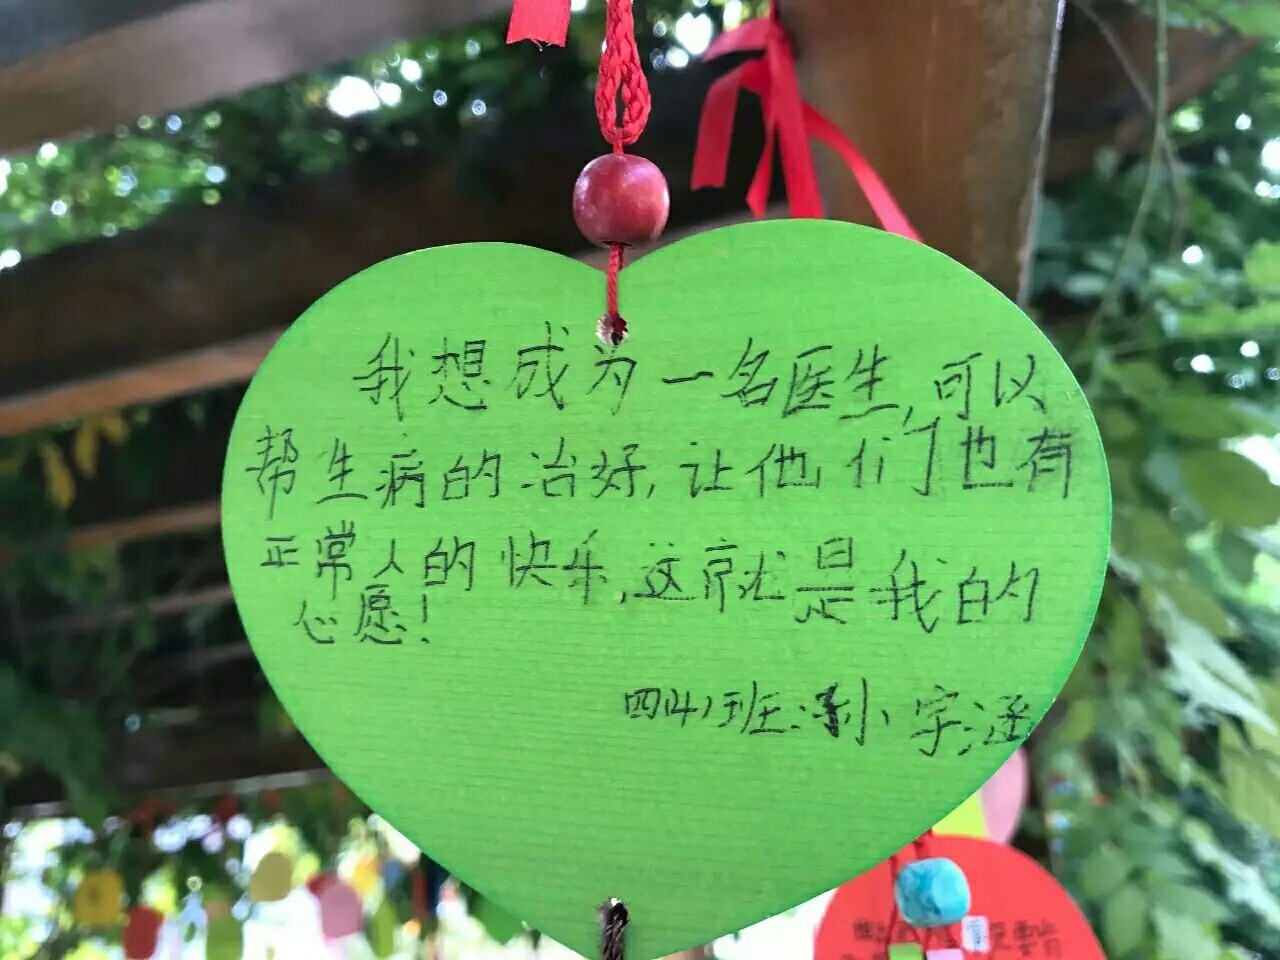 我想成为一名医生,可以
帮生病的治好,让他们也有
正常人的快乐,这就是我的
心愿!
四(4)班:孙宇涵